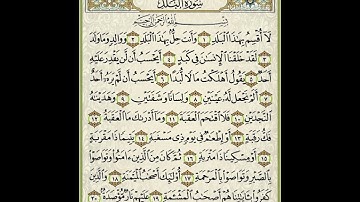 سُورَةُ البَلَدِ
بِسْمِ اللَّهِ الرَّحْمَٰنِ الرَّحِيمِ
لَآ أُقْسِمُ بِهَٰذَا ٱلْبَلَدِ ١ وَأَنتَ حِلٌّۢ بِهَٰذَا ٱلْبَلَدِ ٢ وَوَالِدٍ وَمَا وَلَدَ
٣ لَقَدْ خَلَقْنَا ٱلْإِنسَٰنَ فِى كَبَدٍ ٤ أَيَحْسَبُ أَن لَّن يَقْدِرَ عَلَيْهِ
أَحَدٌ ٥ يَقُولُ أَهْلَكْتُ مَالًا لُّبَدًا ٦ أَيَحْسَبُ أَن لَّمْ يَرَهُۥٓ أَحَدٌ
٧ أَلَمْ نَجْعَل لَّهُۥ عَيْنَيْنِ ٨ وَلِسَانًا وَشَفَتَيْنِ ٩ وَهَدَيْنَٰهُ
ٱلنَّجْدَيْنِ ١٠ فَلَا ٱقْتَحَمَ ٱلْعَقَبَةَ ١١ وَمَآ أَدْرَىٰكَ مَا ٱلْعَقَبَةُ ١٢
فَكُّ رَقَبَةٍ ١٣ أَوْ إِطْعَٰمٌ فِى يَوْمٍ ذِى مَسْغَبَةٍ ١٤ يَتِيمًا ذَا مَقْرَبَةٍ
١٥ أَوْ مِسْكِينًا ذَا مَتْرَبَةٍ ١٦ ثُمَّ كَانَ مِنَ ٱلَّذِينَ ءَامَنُوا۟ وَتَوَاصَوْا۟
بِٱلصَّبْرِ وَتَوَاصَوْا۟ بِٱلْمَرْحَمَةِ ١٧ أُو۟لَٰٓئِكَ أَصْحَٰبُ ٱلْمَيْمَنَةِ ١٨ وَٱلَّذِينَ
كَفَرُوا۟ بِـَٔايَٰتِنَا هُمْ أَصْحَٰبُ ٱلْمَشْـَٔمَةِ ١٩ عَلَيْهِمْ نَارٌ مُّؤْصَدَةٌۢ ٢٠